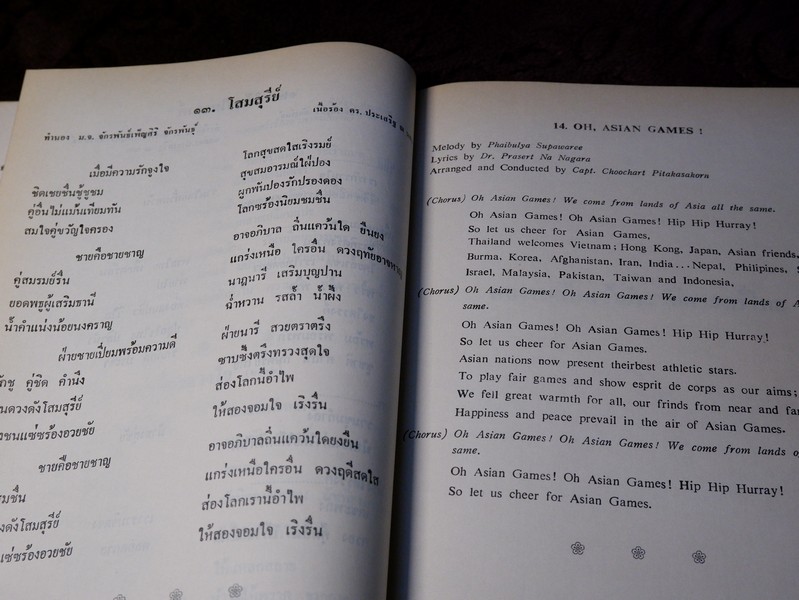 ๑๓. โสมสุรีย์
ทำนอง ม.จ. จักรพันธ์เพ็ญศิริ จักรพันธุ์
เนื้อร้อง ดร. ประเสริฐ ณ
เมื่อมีความรักจูงใจ
โลกสุขสดใสเริงรมย์
ชิดเชยชื่นชู้ชูชม
สุขสมอารมณ์ใฝ่ปอง
คู่อื่นไม่แม้นเทียมทัน
ผูกพันปองรักปรองดอง
สมใจคู่ขวัญใจครอง
โลกซร้องนิยมชมชื่น
ชายคือชายชาญ
อาจอภิบาล ถิ่นแคว้นใด ยืนยง
แกร่งเหนือ ใครอื่น ดวงฤทัยอาจหาญ
คู่สมรมย์รื่น
นาฏนารี เสริมบุญปาน
ยอดพธูผู้เสริมธานี
ฉ่ำหวาน รสถ้ำ น้ำผึ้ง
น้ำคำแน่งน้อยนงคราญ
ฝ่ายนารี สวยตราตรึง
ฝ่ายชายเปี่ยมพร้อมความดี
ซาบซึ้งตรึงทรวงสุดใจ
รักชู คู่ชิด คำนึง
ส่องโลกนี้อำไพ
ดวงดังโสมสุรีย์
ให้สองจอมใจ เริงรื่น
ชนแซ่ซร้องอวยชัย
อาจอภิบาลถิ่นแคว้นใดยงยืน
ชายคือชายชาญ
แกร่งเหนือใครอื่น ดวงฤดีสดใส
ส่องโลกเรานี้อำไพ
ดังโสมสุรีย์
ให้สองจอมใจ เริงรื่น
แซ่ซร้องอวยชัย
14. OH, ASIAN GAMES !
Melody by Phaibulya Supawaree
Lyrics by Dr. Prasert Na Nagara
Arranged and Conducted by Capt. Choochart Pitakasakora
(Chorus) Oh Asian Games! We come from lands of Asia all the same.
Oh Asian Games! Oh Asian Games! Hip Hip Hurray!
So let us cheer for Asian Games,
Thailand welcomes Vietnam; Hong Kong, Japan, Asian friends,
Burma, Korea, Afghanistan, Iran, India...Nepal, Philipines,
Israel, Malaysia, Pakistan, Taiwan and Indonesia,
(Chorus) Oh Asian Games! Oh Asian Games! We come from lands of
same.
Oh Asian Games! Oh Asian Games! Hip Hip Hurray!
So let us cheer for Asian Games.
Asian nations now present theirbest athletic stars.
To play fair games and show esprit de corps as our aims;
We feil great warmth for all, our frinds from near and
Happiness and peace prevail in the air of Asian Games.
(Chorus) Oh Asian Games! Oh Asian Games! We come from lands
same.
Oh Asian Games! Oh Asian Games! Hip Hip Hurray!
So let us cheer for Asian Games.